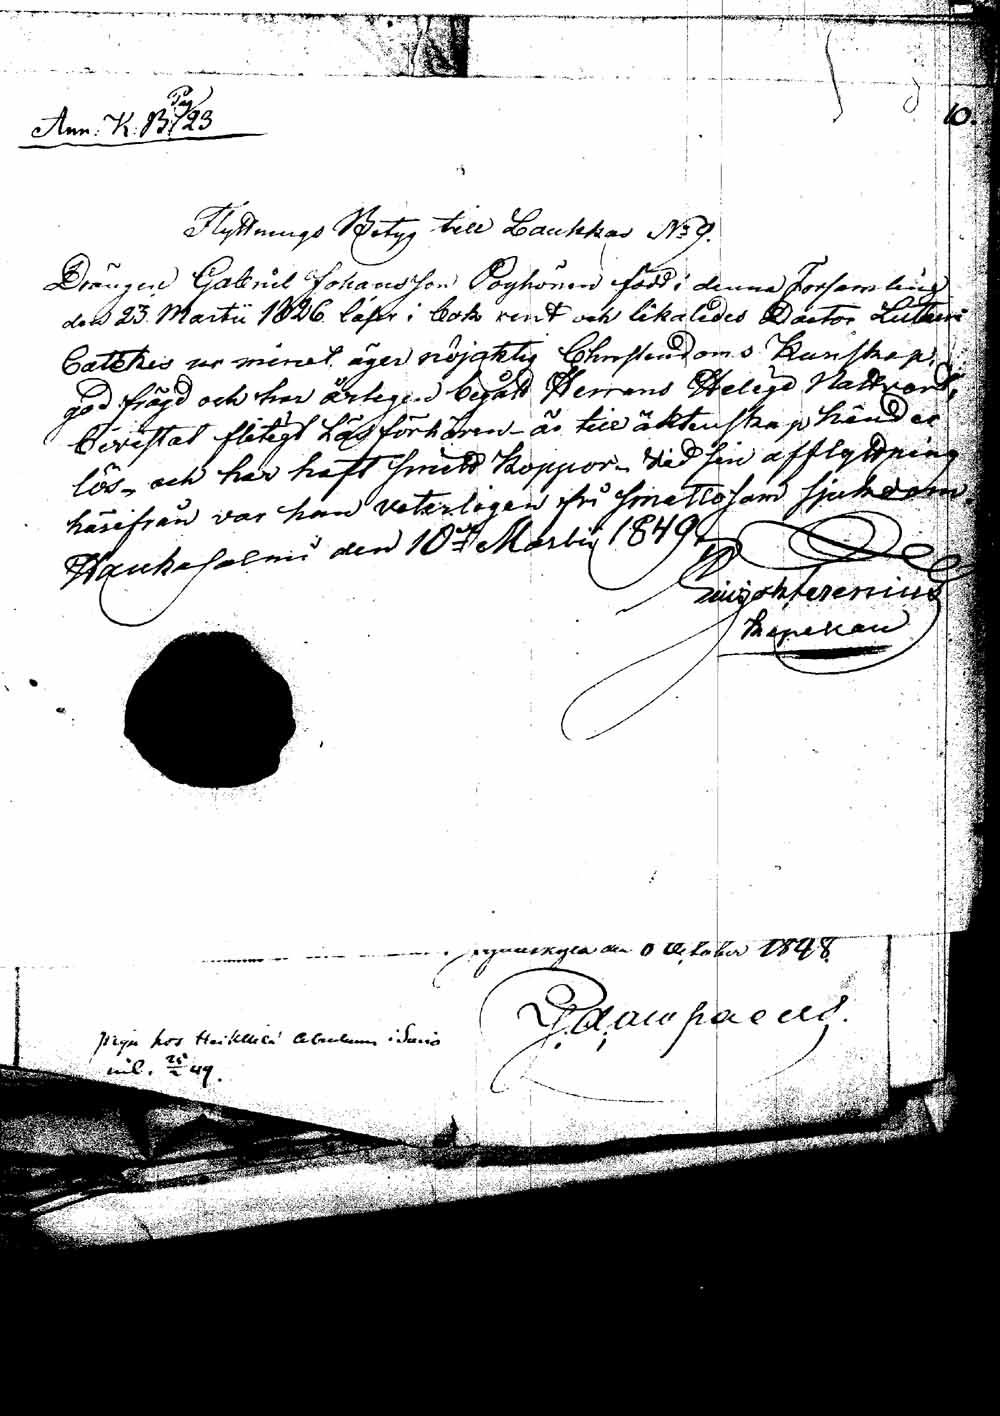 Pag
Ann: K: B: 123
10.
Flyttnings Betyg till Laukkas No 9.
Drängen Gabriel Johansson Pöyhönen född i denna Församling
den 23 Martii 1826 läser i bok rent och likaledes Doctor Lutheri
Catekes ur minnet äger nöjaktig Christendoms Kunskap,
god frägd och har årligen begått Herrans Heliga Nattvard,
bivistat flitigt Läsförhören är till äktenskap händer
lös, och har haft Koppor. Vid sin afflyttning
härifrån var han veterligen fri smittosam sjukdom.
Hankasalmi den 10de Martii 1849.
Kapellan
den October 1848
piga hos i
49.